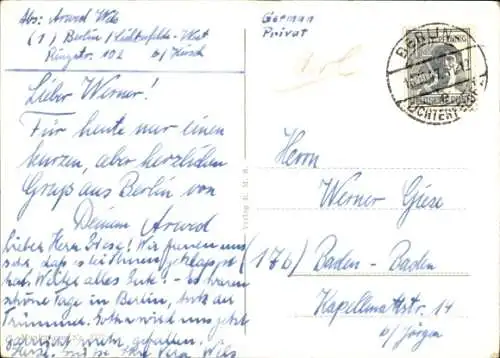 Abs: Arwed Wils
(1) Berlin / Lichterfelde-West
Ringstr. 102 b/ Kirsch
German
Privat
BERLIN
LICHTERF
Lieber Werner!
Für heute nur einen
kurzen, aber herzlichen
Gruss aus Berlin von
Deinem Arwed
Lieber Herr Giese! Wir freuen uns
sehr, dass es
alles Gute! - Es waren
schöne Tage in Berlin, trotz der
Trümmer. Gotha wird uns jetzt
mehr gefallen.
Herzl. Ihre Vera Wils
Verlag
Herrn
Werner Giese
(17b) Baden-Baden
Kapellmattstr. 14
b/ Jörger